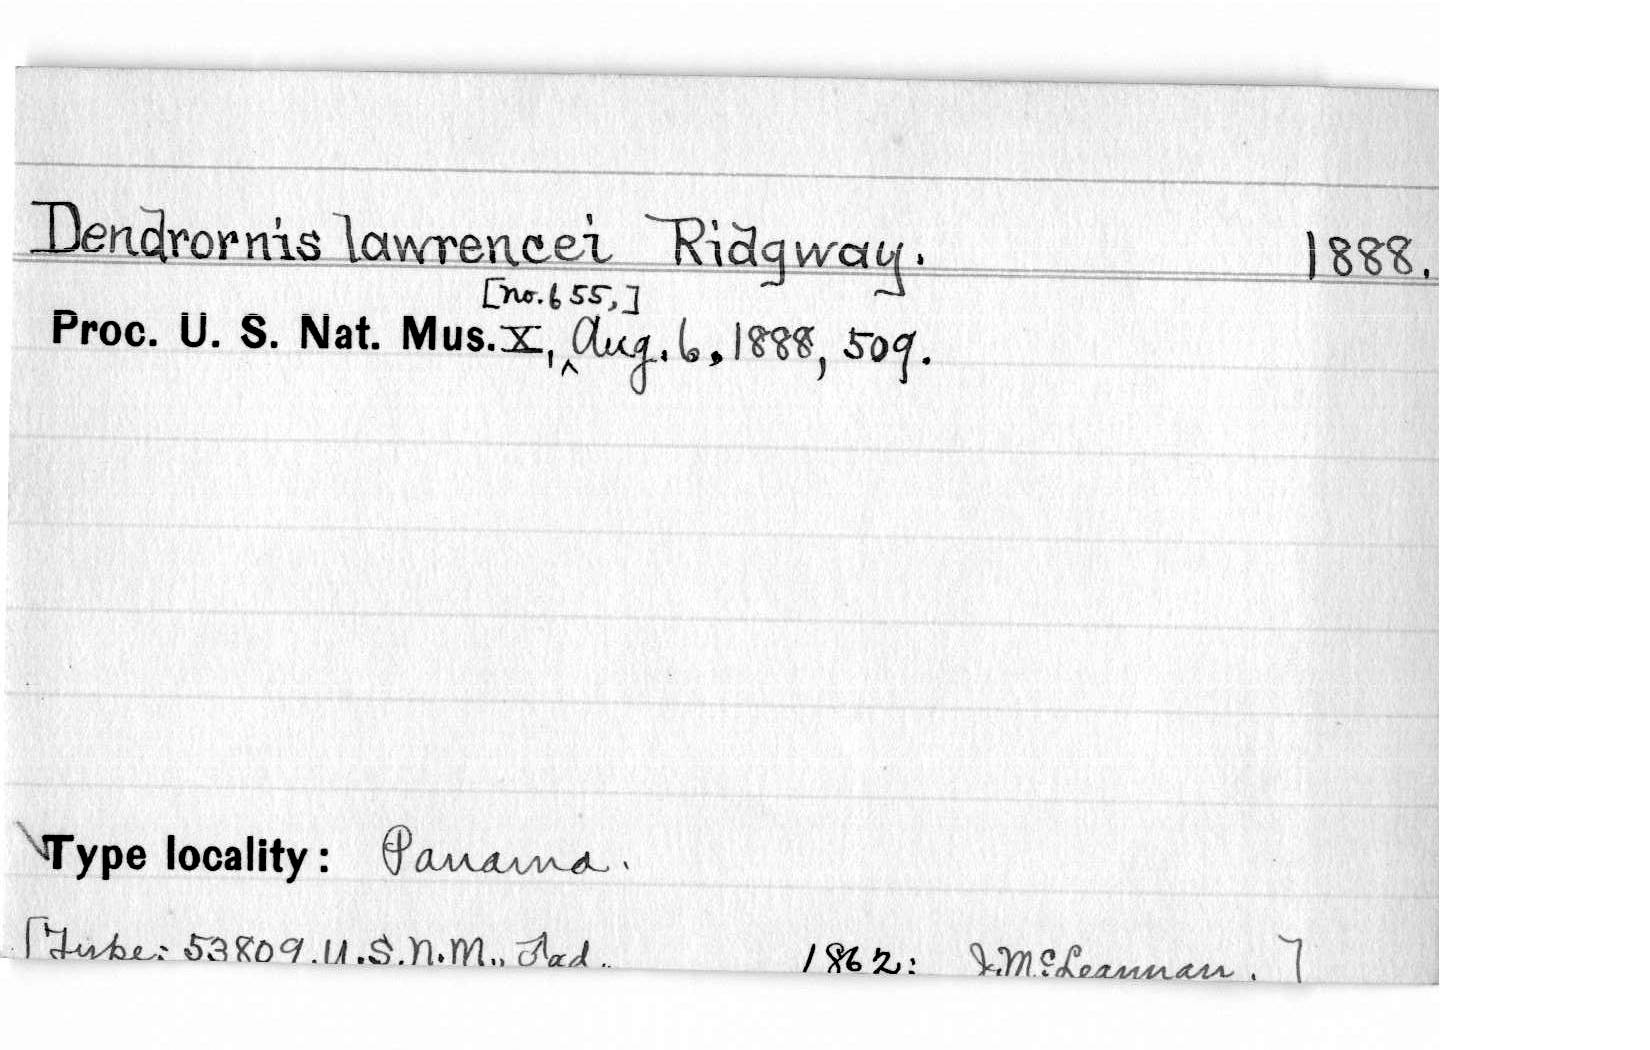 Dendrornis lawrencei Ridgway. 1888.
[no. 655,]
Proc. U. S. Nat. Mus. X, ^ Aug. 6, 1888, 509.
Type locality: Panama.
[Type: 53809. U.S.N.M., Ad. 1862: J. McLeannan.]